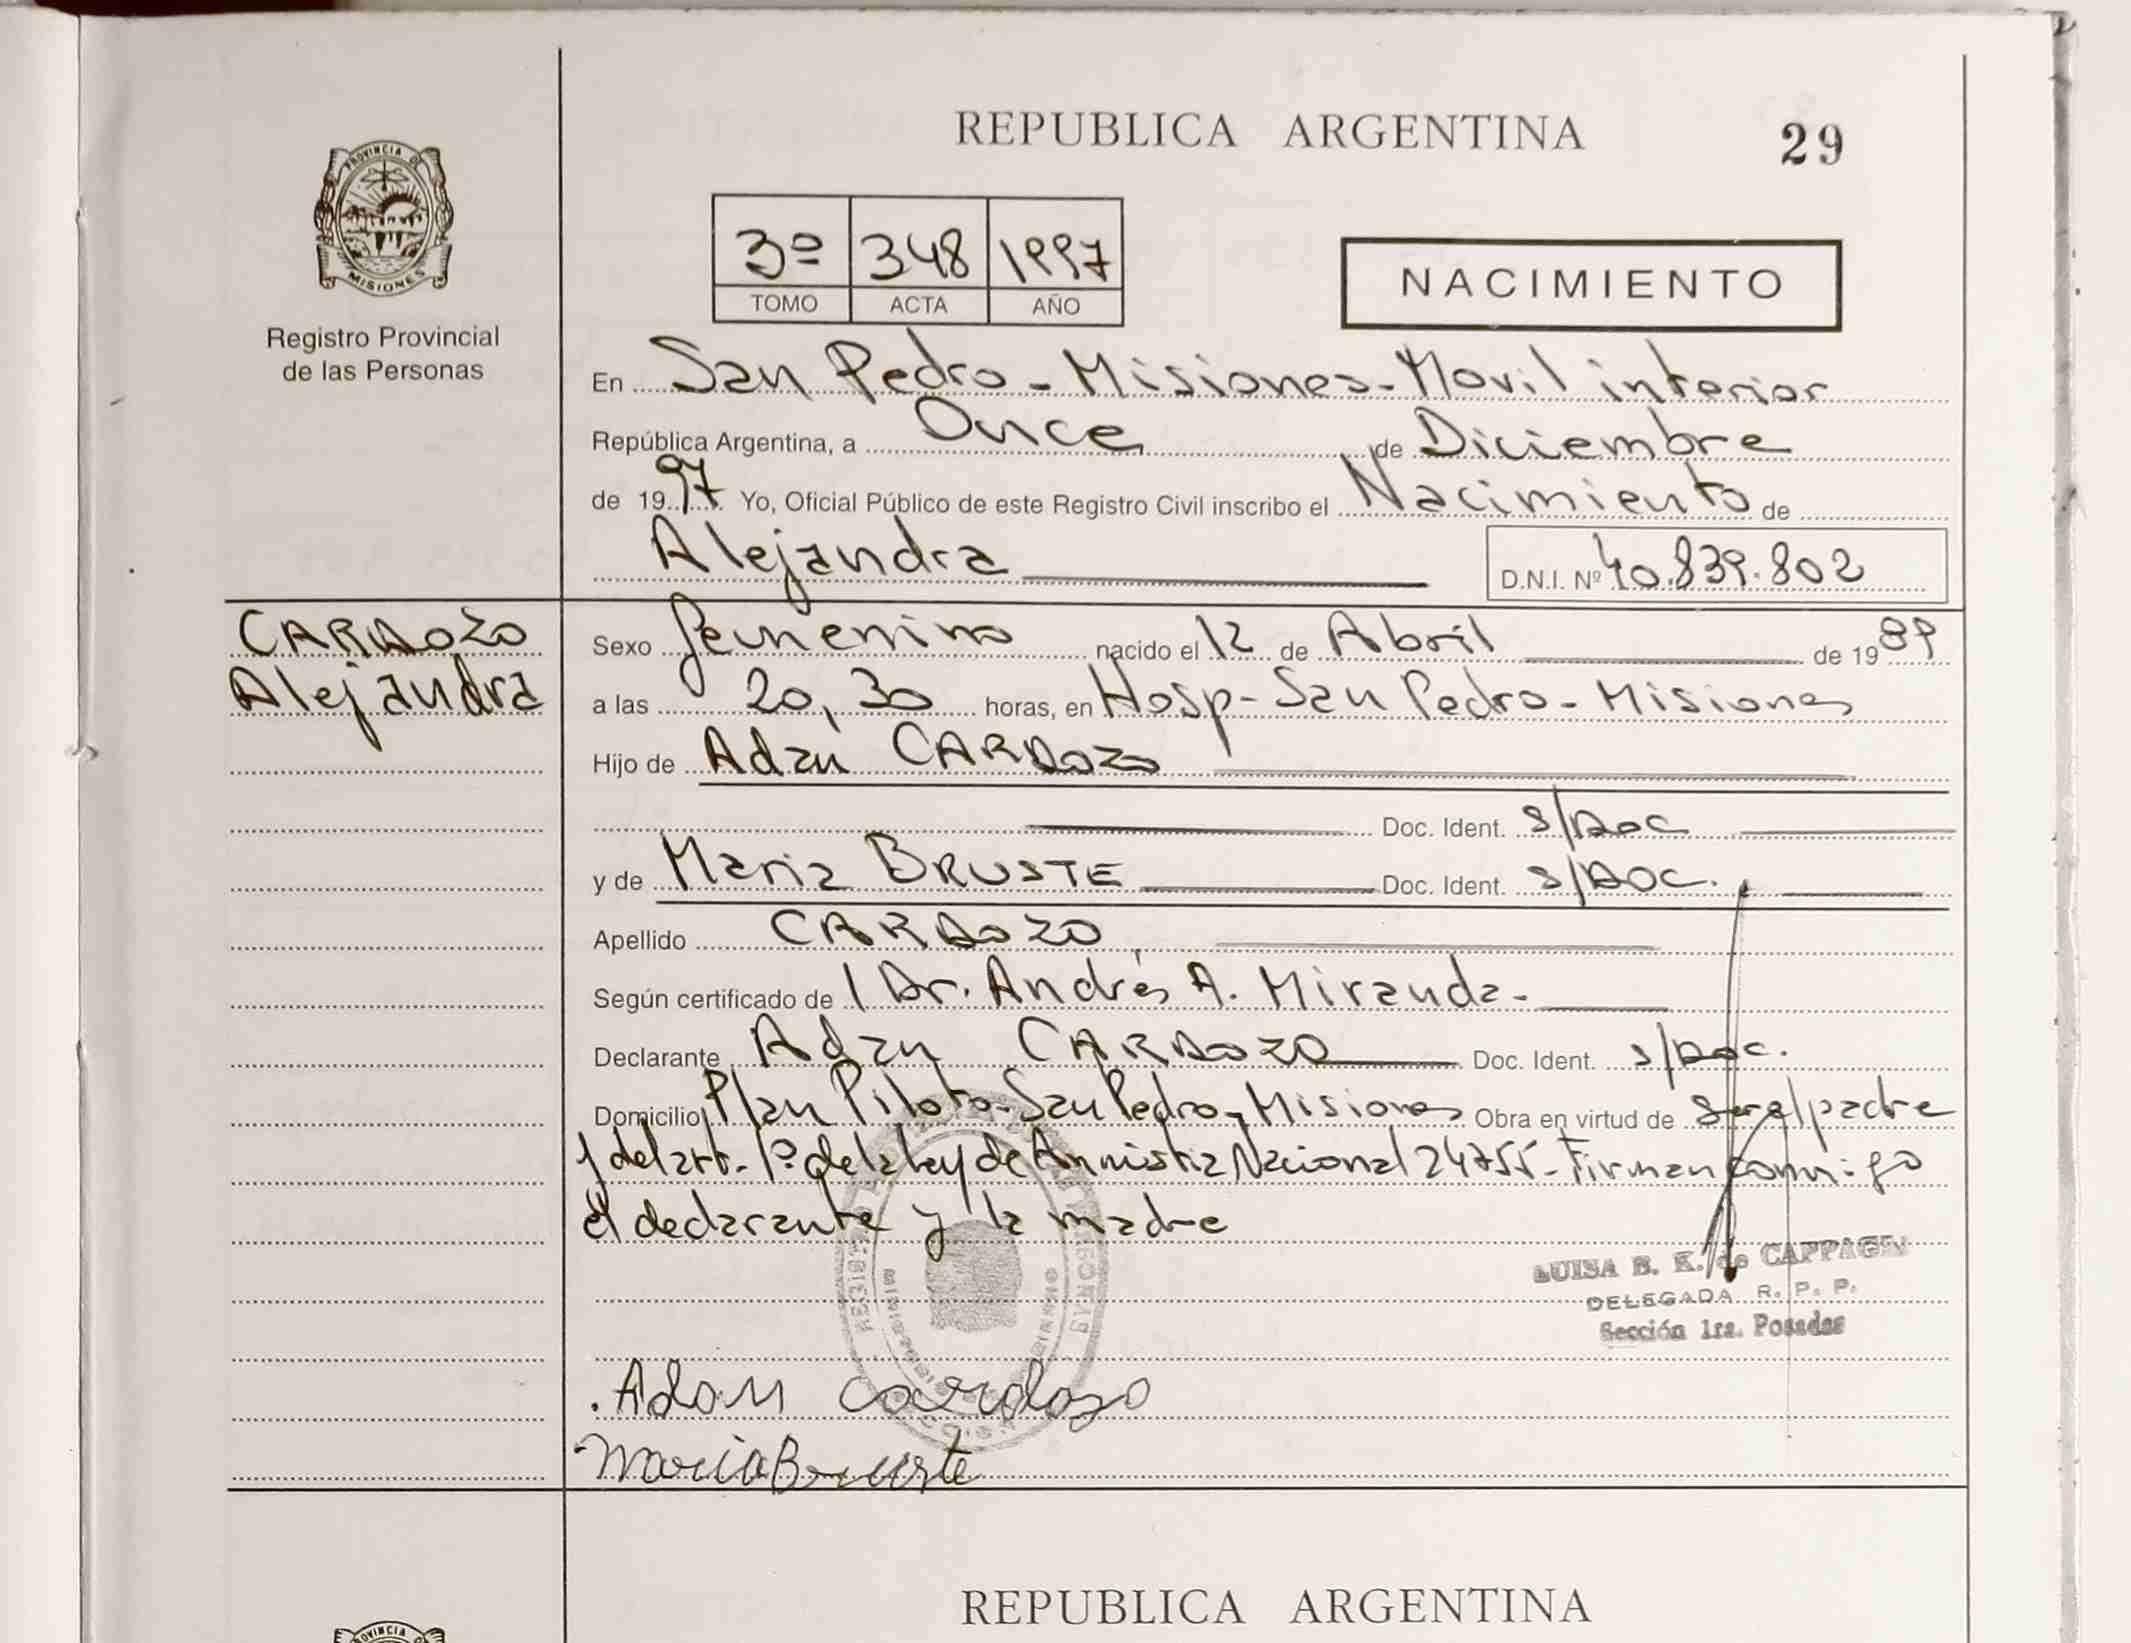 REPUBLICA ARGENTINA
29
PROVINCIA DE
MISIONES
Registro Provincial
de las Personas
3º 348 1997
TOMO ACTA AÑO
NACIMIENTO
En San Pedro - Misiones - Movil interior
República Argentina, a Once de Diciembre
de 1997 Yo, Oficial Público de este Registro Civil inscribo el Nacimiento de
Alejandra D.N.I. Nº 40.839.802
CARDOZO
Alejandra
Sexo femenino nacido el 12 de Abril de 1989
a las 20,30 horas, en Hosp - San Pedro - Misiones
Hijo de Adan CARDOZO
Doc. Ident. s/Doc
y de Maria BRUSTE Doc. Ident. s/Doc.
Apellido CARDOZO
Según certificado de Dr. Andrés A. Miranda -
Declarante Adan CARDOZO Doc. Ident. s/Doc.
Domicilio Plan Piloto - San Pedro - Misiones Obra en virtud de ser el padre
y del art. 1º de la ley de Amnistia Nacional 24755 - Firman conmigo
el declarante y la madre
LUISA B. K. de
DELEGADA R. P. P.
Sección 1ra. Posadas
Adan Cardozo
Maria Bruste
REPUBLICA ARGENTINA
PROVINCIA